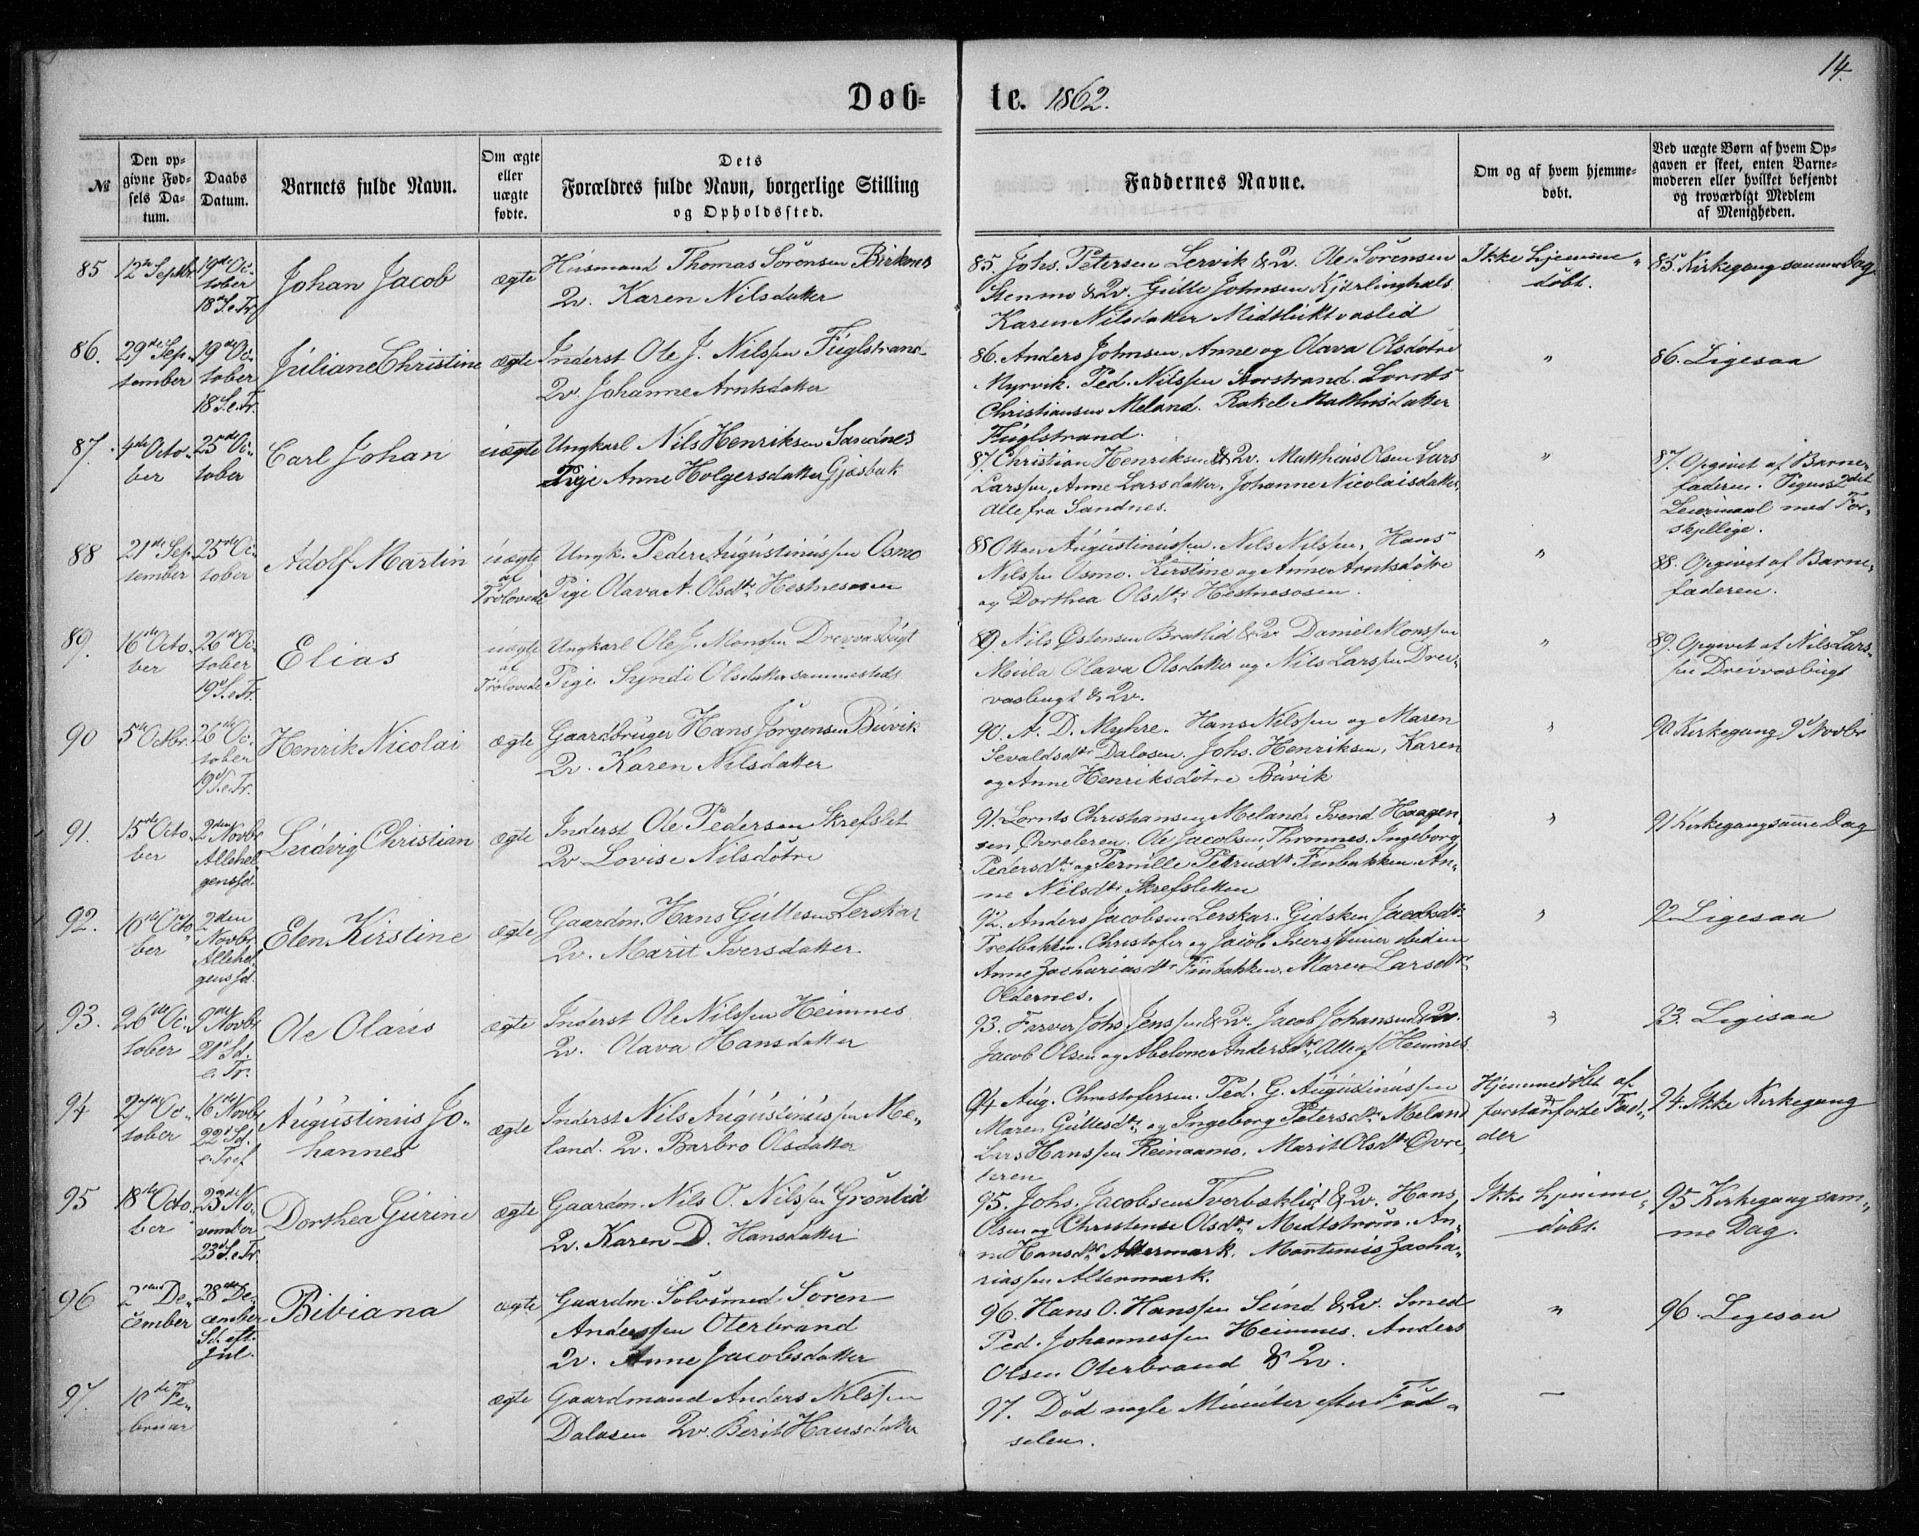 14.
Døb-
te. 1862.
№
Den op-
givne Fød-
sels Da-
tum.
Daabs
Datum.
Barnets fulde Navn.
Om ægte
eller
uægte
fødte.
Dets
Forældres fulde Navn, borgerlige Stilling
og Opholdssted.
Faddernes Navne.
Om og af hvem hjemme-
døbt.
Ved uægte Børn af hvem Op-
gaven er skeet, enten Barne-
moderen eller hvilket bekjendt
og troværdigt Medlem
af Menigheden.
85
12te Septbr
19de Oc-
tober
18 S.e.Tr.
Johan Jacob
ægte
Husmand Thomas Sörensen Birknes
Qv. Karen Nilsdatter
85. Johs. Petersen Lervik & Qv. Ole Sørensen
Stenmo & Qv. Gutte Johnsen Kjerlinghals
Karen Nilsdatter
Ikke hjemme-
döbt.
85. Kirkegang samme Dag
86.
29de Sep-
tember
19de Oc-
tober
18 S.e.Tr.
Juliane Christine
ægte
Inderst Ole J. Nilssen Fuglstrand
Qv. Johanne Arntsdatter
86. Anders Johnsen, Anne og Olava Olsdøtre
Myrvik. Ped. Nilssen Storstrand. Lornts
Christiansen Meland. Rakel Mathisdatter
Fuglstrand.
"
86. Ligesaa
87.
4de Octo-
ber
25de Oc-
tober
Carl Johan
uægte
Ungkarl Nils Henriksen Sandnes
Pige Anne Holgersdatter Gjæsbak
87. Christian Henriksen & Qv. Matthias Olsen Lars
Larssen, Anne Larsdatter, Johanne Nicolaisdatter,
Alle fra Sandnes.
"
87. Opgivet af Barne-
faderen. Pigens 2det
Leiermaal med For-
skjellige.
88
21de Sep-
tember
25de Oc-
tober
Adolf Martin
uægte
af
Trolovede
Ungk. Peder Augustinussen Osmo
Pige Olava A. Olsdtr Hestnesosen
88 Augustinussen. Nils Nilssen, Hans
Nilssen Osmo. Kirstine og Anne Arntsdøtre
og Dorthea Olsdtr Hestnesosen.
"
88. Opgivet af Barne-
faderen.
89.
16de Octo-
ber
26de Oc-
tober
19 S.e.Tr.
Elias
uægte
af
Trolovede
Ungkarl Ole J. Monssen Drevvasbugt
Pige Syndi Olsdatter sammesteds
89. Nils Østensen Bratlid & Qv Daniel Monssen
Mula Olava Olsdatter og Nils Larssen Drev-
vasbugt & Qv.
"
89. Opgivet af Nils Lars-
sen Drevvasbugt
90
5te Octbr.
26de Oc-
tober
19 S.e.Tr.
Henrik Nicolai
ægte
Gaardbruger Hans Jörgensen Buvik
Qv. Karen Nilsdatter
90. A. D. Myhre. Hans Nilssen og Maren
Sevaldsdtr Dalosen. Johs. Henriksen, Karen
og Anne Henriksdøtre Buvik
"
90 Kirkegang 9de Novbr
91.
15de Octo
ber
2den
Novbr
Allehel-
gensd.
Ludvig Christian
ægte
Inderst Ole Pedersen Skrefslet
Qv Lovise Nilsdotre
91. Lornts Christiansen Meland, Svend Haagen-
sen Øvreleren. Ole Jacobsen Thronnes. Ingeborg
Pedersdtr og Pernille Petrusdtr Finbakken. An-
ne Nilsdtr Skrefsletten
"
91 Kirkegang samme Dag
92.
16de Octo
ber
2den
Novbr.
Allehel-
gensd.
Elen Kirstine
ægte
Gaardm. Hans Guttesen Lerskar
Qv. Marit Iversdatter
92. Anders Jacobsen Lerskar. Gidsken Jacobsdtr
Tretbakken. Christofer og Jacob Iversen
Anne Zachariasdtr Finbakken. Maren Larsdtr
Oldernes.
"
92 Ligesaa
93.
26de Oc-
tober
9de Novbr
21 Sd.
e. Tr.
Ole Olaus
ægte
Inderst Ole Nilssen Heimnes
Qv. Olava Hansdatter
93. Farver Johs Jenssen & Qv. Jacob Johansen & Qv.
Jacob Olsen og Abelone Andersdtr, Alle af Heimnes
"
93. Ligesaa
94
27de Oc-
tober
16 Novbr
22 Sd.
e. Tref.
Augustinus Jo-
hannes
ægte
Inderst Nils Augustinussen Me-
land. Qv. Barbro Olsdatter
94 Aug. Christofersen. Ped. G. Augustinussen
Maren Guttesdtr, og Ingeborg Petersdtr Meland
Lars Hanssen Reinaamo. Marit Olsdtr Øvre-
leren
Hjemmedöbt af
forstanförte Fad-
der
94. Ikke Kirkegang
95
18de Octo
ber
23de No-
vember
23 S.e.Tr.
Dorthea Gurine
ægte
Gaardm. Nils O. Nilssen Grønlid
Qv. Karen D. Hansdatter
95. Johs. Jacobsen Tverbæklid & Qv. Hans
Olsen og Christense Olsdtr Midtstrøm. An-
ne Hansdtr Altermark. Martinus Zacha-
riassen Altermark.
Ikke hjemme-
döbt.
95 Kirkegang sam-
me Dag.
96
2den De-
cember
28de De-
cember
Sd. eft.
Jul.
Bibiana
ægte
Gaardm. Sølvsmed Sören
Anderssen Oterbrand
Qv. Anne Jacobsdatter
96. Hans O. Hanssen Sund & Qv. Smed
Ped. Johannessen Heimnes. Anders
Olsen Oterbrand & Qv.
"
96. Ligesaa
97.
10de Fe-
bruar
ægte
Gaardmand Anders Nilssen
Dalosen Qv. Berit Hansdatter
97. Död nogle Minuter efter Föd-
selen.
—